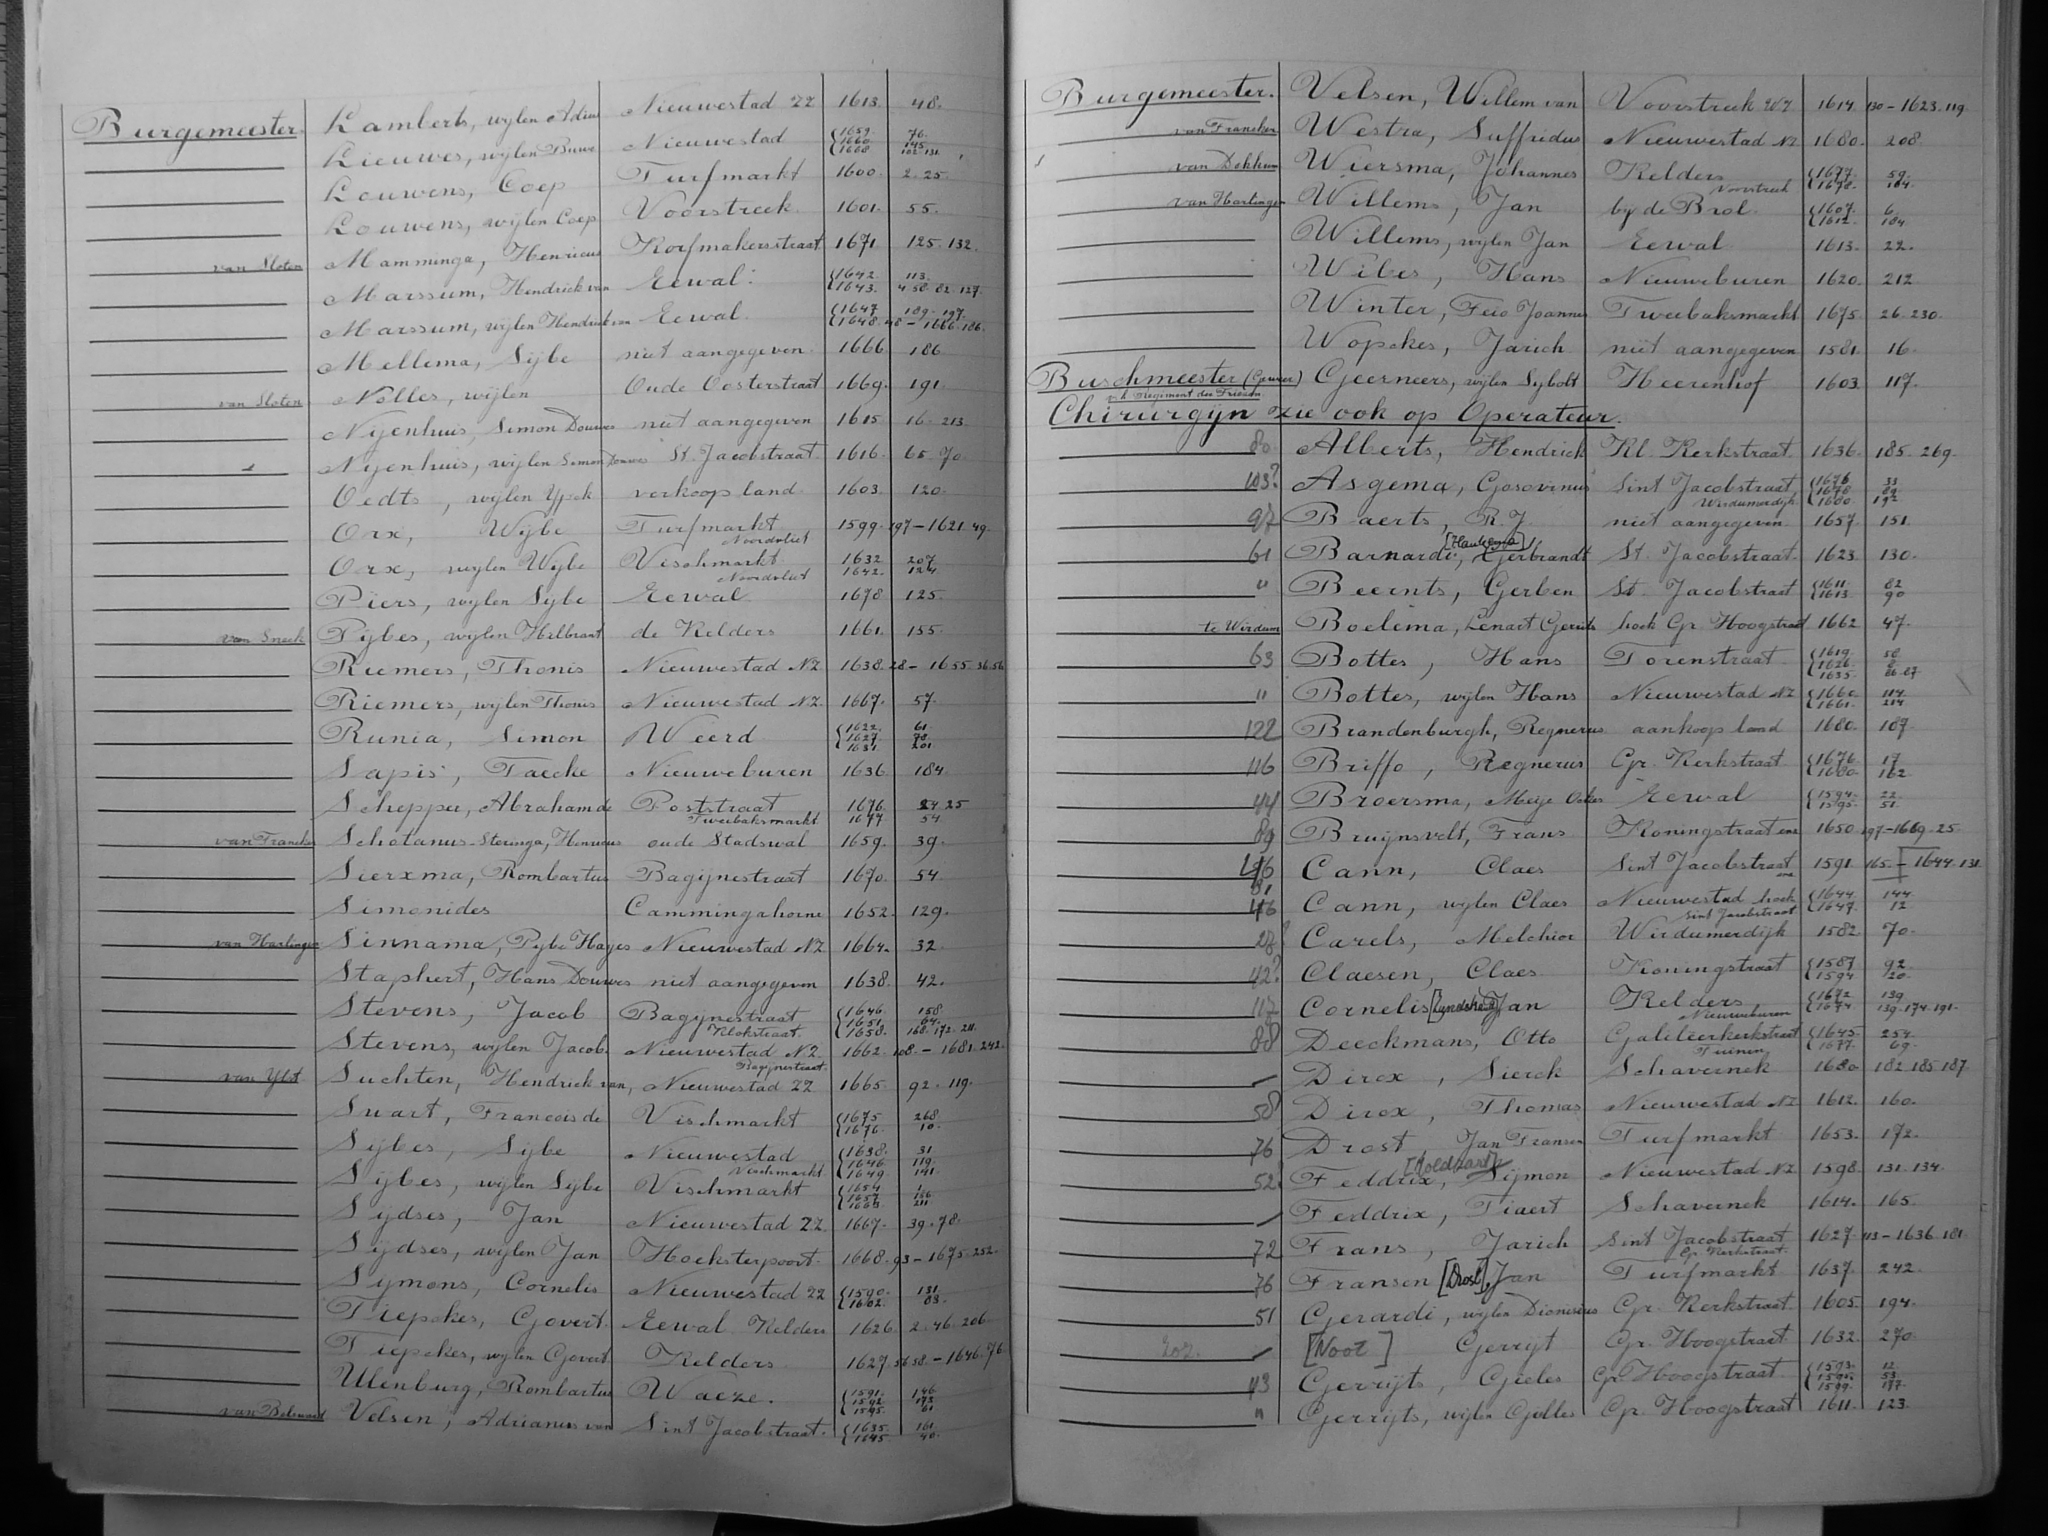 Burgemeester. Lamberts, wijlen Adius Nieuwestad ZZ 1613. 48.
Lieuwes, wijlen Buwe Nieuwestad {1659. 1660. 1668 76. 145. 102-131
Louwens, Coep Turfmarkt 1600. 2. 25.
Louwens, wijlen Coep Voorstreek. 1601. 55.
van Sloten Mamminga, Henricus Korfmakersstraat. 1671. 125. 132.
Marssum, Hendrick van Eewal. {1642. 1643. 113. 4.58.82.127.
Marssum, wijlen Hendrick van Eewal. {1647. 1648. 189. 197. 48 - 1666. 186.
Mellema, Sijbe niet aangegeven. 1666. 186.
van Sloten Nolles, wijlen Oude Oosterstraat 1669. 191.
Nijenhuis, Simon Douwes niet aangegeven 1615 16. 213.
Nijenhuis, wijlen Simon Douwes St. Jacobstraat. 1616. 65. 70.
Oedts, wijlen Ypek verkoop land. 1603. 120.
Orx, Wijbe Turfmarkt Noordvliet 1599. 197 - 1621. 49.
Orx, wijlen Wijbe Vischmarkt Noordvliet 1632. 1642. 207. 124
Piers, wijlen Sijbe Eewal 1678 125.
van Sneek Pijbes, wijlen Hilbrant de Kelders 1661. 155.
Riemers, Thonis Nieuwestad NZ. 1638. 28 - 1655. 36.56
Riemers, wijlen Thonis Nieuwestad NZ. 1667. 57.
Runia, Simon Weerd {1622. 1627. 1631. 61. 78. 201
Sapis, Taecke Nieuweburen 1636 184.
Schepper, Abraham de Poststraat Tweebaksmarkt 1676. 1677 24.25 54.
van Franeker Schotanus-Steringa, Henricus oude Stadswal 1659. 39.
Sierxma, Rombartus Bagijnestraat 1670. 54.
Simonides Cammingahorne 1652. 129.
van Harlingen Sinnama, Pijbe Hayes Nieuwestad NZ 1664. 32.
Staphert, Hans Douwes niet aangegeven 1638. 42.
Stevens, Jacob Bagijnestraat Klokstraat {1646. 1651. 1658. 158. 64. 168. 172. 211.
Stevens, wijlen Jacob. Nieuwestad NZ Bagijnestraat 1662. 108. - 1681. 242.
van Ylst Suchten, Hendrick van, Nieuwestad ZZ 1665. 92. 119.
Swart, Francois de Vischmarkt {1675 1676. 268. 10.
Sijbes, Sijbe Nieuwestad Vischmarkt {1638. 1646. 1649. 31 119. 141.
Sijbes, wijlen Sijbe Vischmarkt {1654 1657. 1663. 1. 166. 211.
Sijdses, Jan Nieuwestad ZZ. 1667. 39. 78.
Sijdses, wijlen Jan Hoeksterpoort. 1668. 93 - 1675. 252.
Symons, Cornelis Nieuwestad ZZ {1590. 1602. 131. 83.
Tiepckes, Govert. Eewal Kelders 1626 2. 46. 206.
Tiepckes, wijlen Govert Kelders. 1627. 56 58. - 1646. 76.
Ulenburg, Rombartus Waeze. {1591. 1592. 1595. 146 192 61
van Bolsward Velsen, Adrianus van Sint Jacobstraat. {1635. 1645. 161. 40.
Burgemeester. Velsen, Willem van Voorstreek WZ 1614. 130 - 1623. 119.
van Franeker Westra, Suffridus Nieuwestad NZ 1680. 208.
van Dokkum Wiersma, Johannes Kelders Voorstreek {1677. 1678. 59. 184.
van Harlingen Willems, Jan bij de Brol. {1607. 1612. 6. 184
Willems, wijlen Jan Eewal 1613. 22.
Wibes, Hans Nieuweburen 1620. 212.
Winter, Feio Joannes Tweebaksmarkt 1675. 26. 230.
Wopckes, Jarich niet aangegeven 1581. 16.
Buschmeester (Geweer) Geerneers, wijlen Sybolt Heerenhof 1603. 117.
v.h. Regiment der Friesen
Chirurgijn zie ook op Operateur.
80. Alberts, Hendrick Kl. Kerkstraat. 1636. 185. 269.
103? Asgema, Gosovinus Sint Jacobstraat Wirdumerdijk {1676 1678 1680 33 89. 192
97 Baerts, R. J. niet aangegeven. 1657. 151.
61 Barnardi, [Haukema] Gerbrandt St. Jacobstraat. 1623. 130.
" Beernts, Gerben St. Jacobstraat {1611. 1613. 82 90
te Wirdum Boelema, Lenart Gerrits hoek Gr. Hoogstraat 1662 47.
63 Bottes, Hans Torenstraat {1619. 1626. 1635. 58 8. 86.87
" Bottes, wijlen Hans Nieuwestad NZ {1660. 1661. 114. 214.
122 Brandenburgh, Regnerus aankoop land 1680. 187.
116 Briffo, Regnerus Gr. Kerkstraat {1676. 1680. 17. 162.
44 Broersma, Meije Ockes Eewal {1594. 1595. 22. 51.
89 Bruijnsvelt, Frans Koningstraat enz 1650. 197 - 1669. 25
46 Cann, Claes Sint Jacobstraat enz 1591 165. - 1644. 131.
46 Cann, wijlen Claes Nieuwestad hoek Sint Jacobstraat {1644 1647. 144. 12
28? Carels, Melchior Wirdumerdijk 1582 70.
42? Claesen, Claes Koningstraat {1587 1594 92 20.
117 Cornelis [Landsheer] Jan Kelders, Nieuweburen {1672 1674. 139. 139. 174. 191.
88 Deeckmans, Otto Galileerkerkstraat Tuinen {1645. 1677. 254. 69.
Dirox, Sierck Schavernek 1680. 182. 185. 187.
58 Dirox, Thomas Nieuwestad NZ 1612. 160.
76 Drost, Jan Fransen Turfmarkt 1653. 172.
52? Feddrix, [Koldhart] Sijmon Nieuwestad NZ 1598. 131. 134.
Feddrix, Tiaert Schavernek 1614. 165.
72 Frans, Jarich Sint Jacobstraat Gr. Kerkstraat. 1627. 113 - 1636. 181.
76 Fransen [Drost], Jan Turfmarkt 1637. 242.
51 Gerardi, wijlen Dionesius Gr. Kerkstraat. 1605. 194.
[Noot] Gerrijt Gr. Hoogstraat. 1632. 270.
43 Gerrijts, Gieles Gr. Hoogstraat. {1593. 1595. 1599. 12. 53. 177.
" Gerrijts, wijlen Gilles Gr. Hoogstraat 1611. 123.